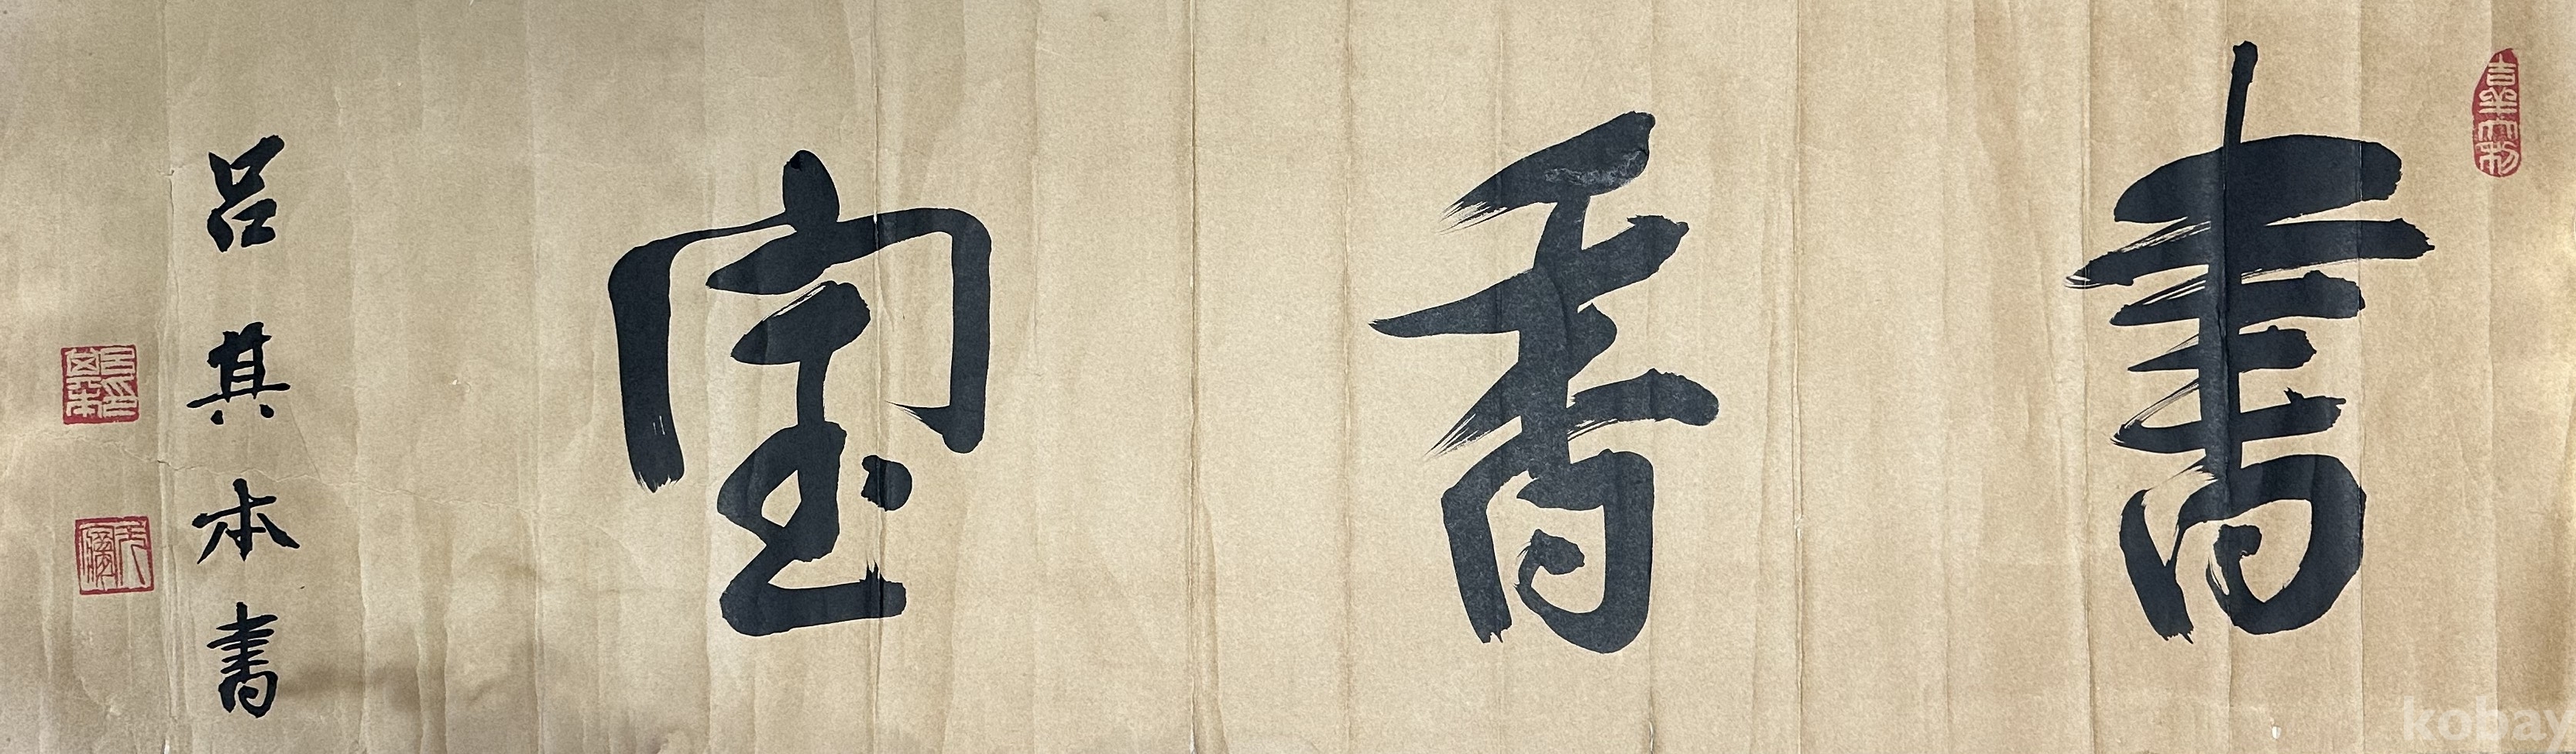 書香室
呂其本書
kobay